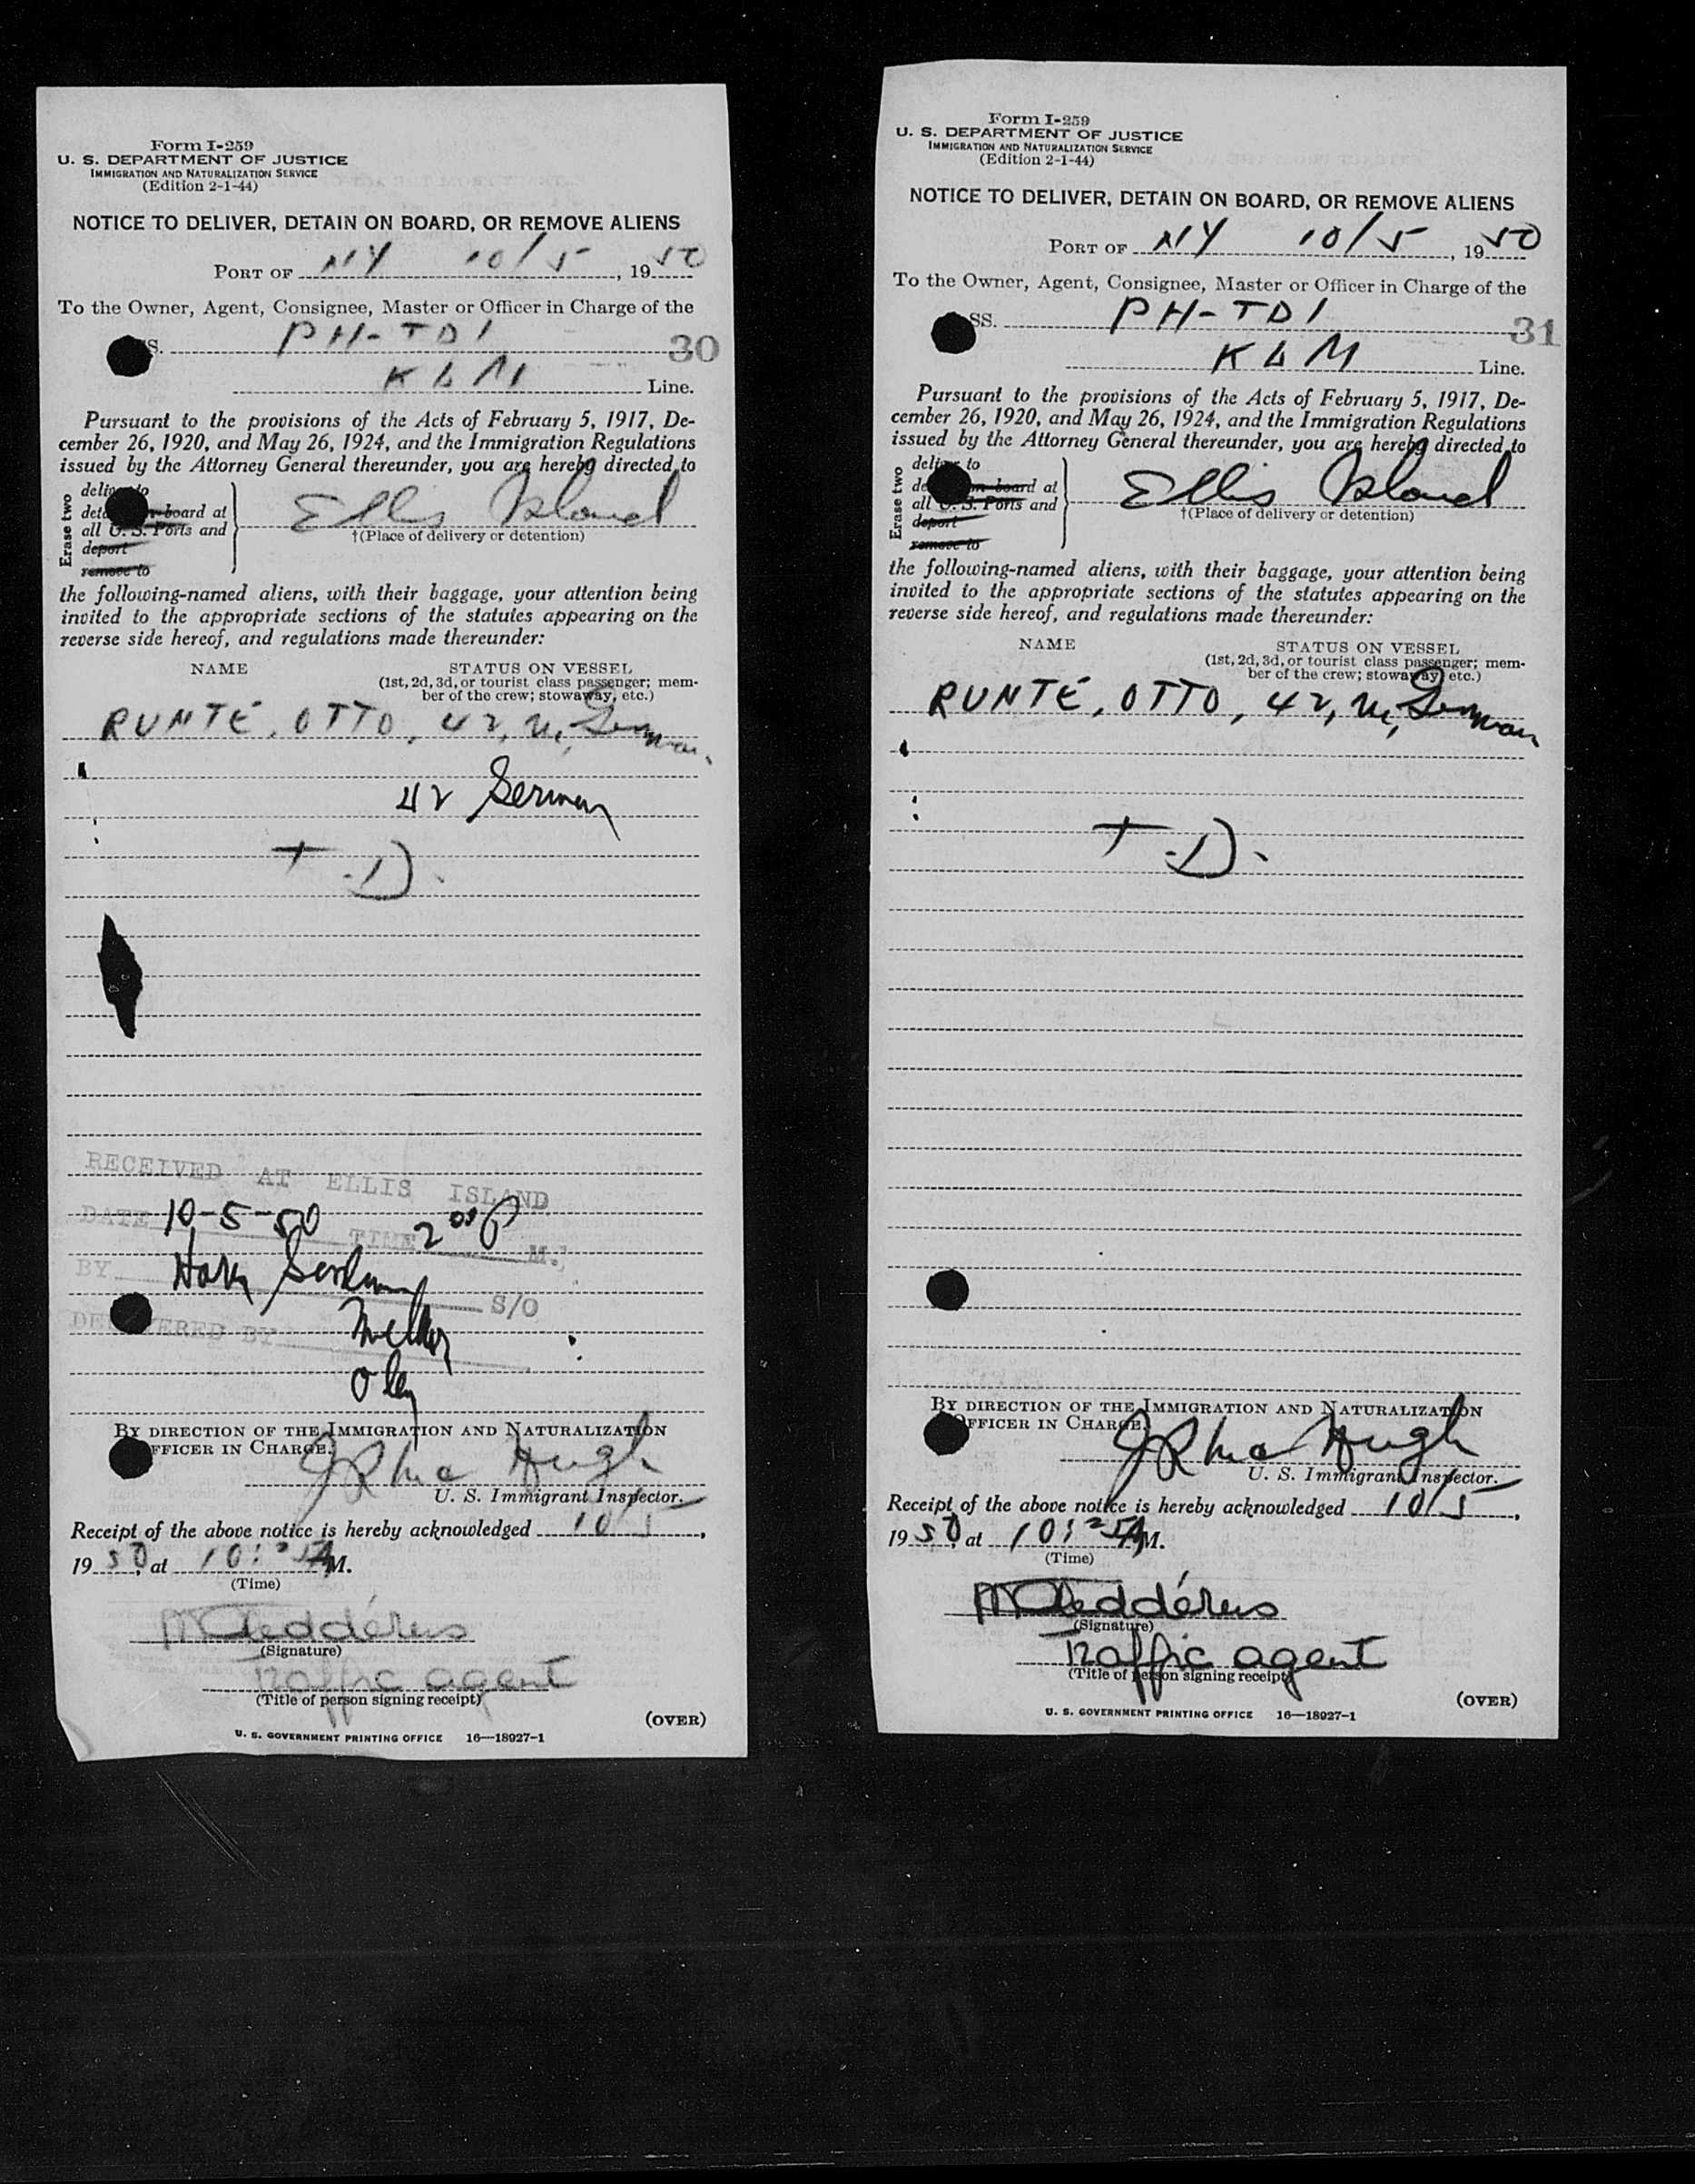 Form I-259
U. S. DEPARTMENT OF JUSTICE
IMMIGRATION AND NATURALIZATION SERVICE
(Edition 2-1-44)
NOTICE TO DELIVER, DETAIN ON BOARD, OR REMOVE ALIENS
PORT OF NY 10/5, 1950
To the Owner, Agent, Consignee, Master or Officer in Charge of the
SS. PH-TDI 30
KLM Line.
Pursuant to the provisions of the Acts of February 5, 1917, De-
cember 26, 1920, and May 26, 1924, and the Immigration Regulations
issued by the Attorney General thereunder, you are hereby directed to
Erase two
deliver to
on board at
all U. S. Ports and
deport
remove to
Ellis Island
†(Place of delivery or detention)
the following-named aliens, with their baggage, your attention being
invited to the appropriate sections of the statutes appearing on the
reverse side hereof, and regulations made thereunder:
NAME STATUS ON VESSEL
(1st, 2d, 3d, or tourist class passenger; mem-
ber of the crew; stowaway, etc.)
RUNTE, OTTO, 42, M, German
42 German
T.D.
RECEIVED AT ELLIS ISLAND
DATE 10-5-50 TIME 2 00 P M.
BY S/O
DELIVERED BY
BY DIRECTION OF THE IMMIGRATION AND NATURALIZATION
OFFICER IN CHARGE.
JR McHugh
U. S. Immigrant Inspector.
Receipt of the above notice is hereby acknowledged 10/5,
1950, at 10:25 AM.
(Time)
(Signature)
Traffic agent
(Title of person signing receipt)
(OVER)
U. S. GOVERNMENT PRINTING OFFICE 16—18927-1
Form I-259
U. S. DEPARTMENT OF JUSTICE
IMMIGRATION AND NATURALIZATION SERVICE
(Edition 2-1-44)
NOTICE TO DELIVER, DETAIN ON BOARD, OR REMOVE ALIENS
PORT OF NY 10/5, 1950
To the Owner, Agent, Consignee, Master or Officer in Charge of the
SS. PH-TDI 31
KLM Line.
Pursuant to the provisions of the Acts of February 5, 1917, De-
cember 26, 1920, and May 26, 1924, and the Immigration Regulations
issued by the Attorney General thereunder, you are hereby directed to
Erase two
deliver to
on board at
all U. S. Ports and
deport
remove to
Ellis Island
†(Place of delivery or detention)
the following-named aliens, with their baggage, your attention being
invited to the appropriate sections of the statutes appearing on the
reverse side hereof, and regulations made thereunder:
NAME STATUS ON VESSEL
(1st, 2d, 3d, or tourist class passenger; mem-
ber of the crew; stowaway, etc.)
RUNTE, OTTO, 42, M, German
T.D.
BY DIRECTION OF THE IMMIGRATION AND NATURALIZATION
OFFICER IN CHARGE.
JR McHugh
U. S. Immigrant Inspector.
Receipt of the above notice is hereby acknowledged 10/5,
1950, at 10:25 AM.
(Time)
(Signature)
Traffic agent
(Title of person signing receipt)
(OVER)
U. S. GOVERNMENT PRINTING OFFICE 16—18927-1